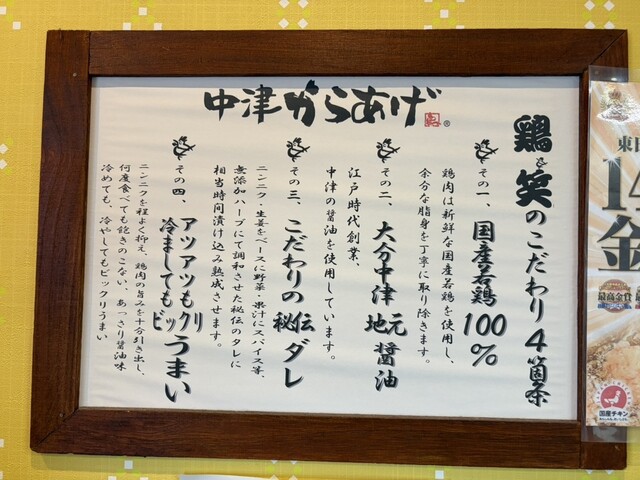 中津からあげ
鶏笑のこだわり4箇条
その一、国産若鶏100%
鶏肉は新鮮な国産若鶏を使用し、
余分な脂身を丁寧に取り除きます。
その二、大分中津地元醤油
江戸時代創業、
中津の醤油を使用しています。
その三、こだわりの秘伝ダレ
ニンニク・生姜をベースに野菜・果汁にスパイス等、
無添加ハーブにて調和させた秘伝のタレに
相当時間漬け込み熟成させます。
その四、アツアツもクリ
冷ましてもビックリうまい
ニンニクを程よく抑え、鶏肉の旨みを十分引き出し、
何度食べても飽きのこない、あっさり醤油味
冷めても、冷やしてもビックリうまい
東日
14
金
最高金賞
国産チキン